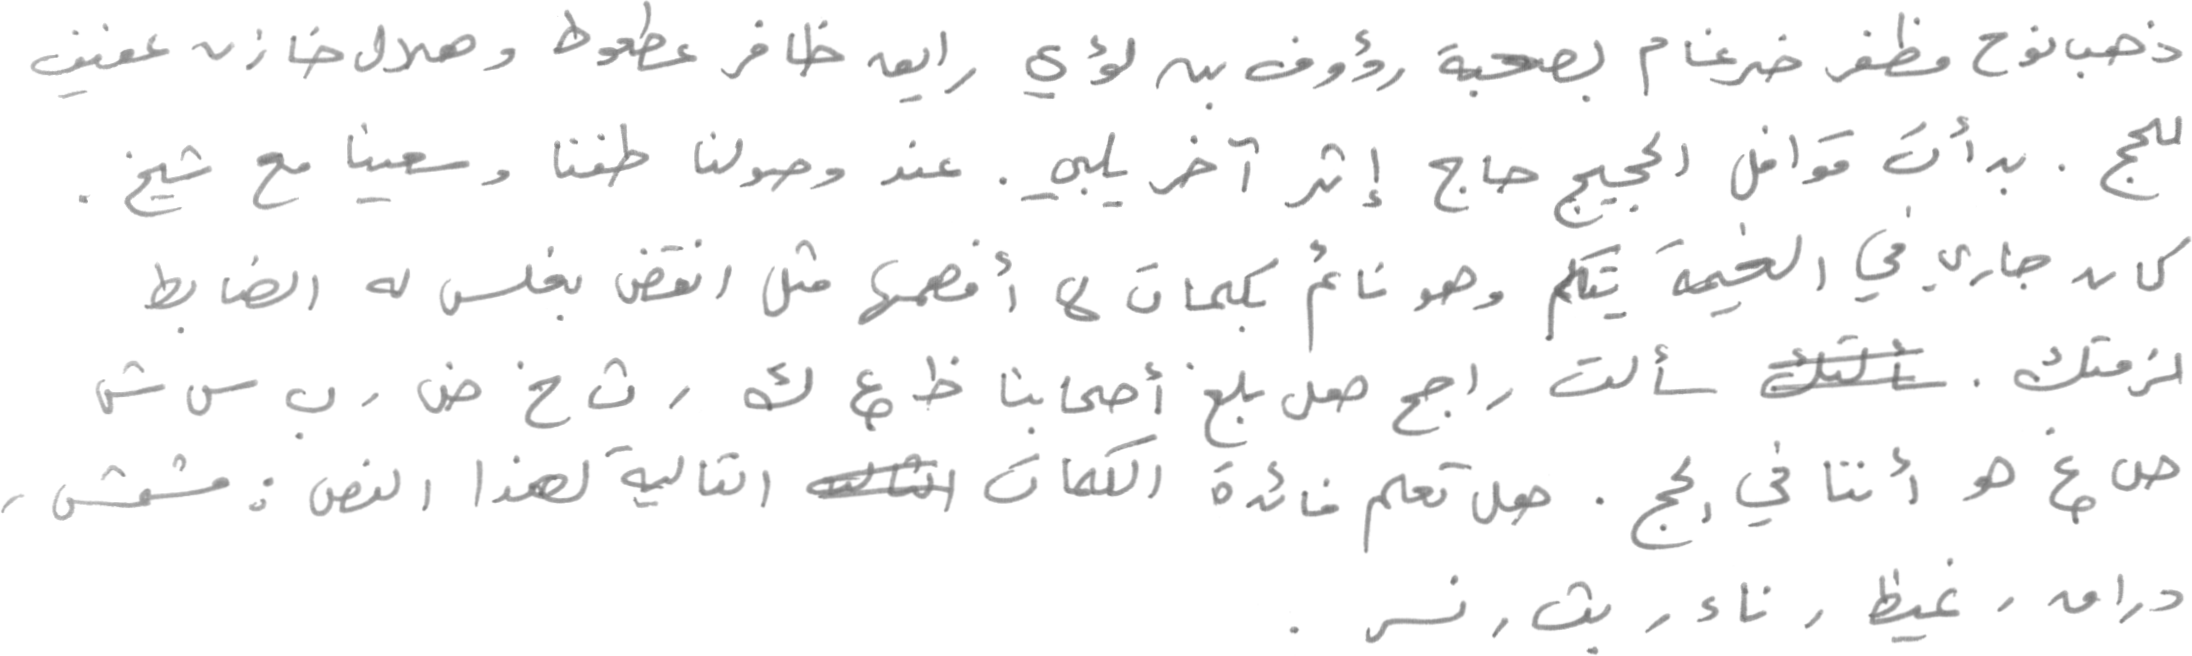 ذهب نوح مظفر ضرغام بصحبة رؤوف بن لؤي رايق ظافر عطعوط وهلال خازن عفيف
للحج . بدأت قوافل الحجيج حاج إثر آخر يلبي . عند وصولنا طفنا وسعينا مع شيخ .
كان جاري في الخيمة يتكلم وهو نائم بكلمات لا أفهمها مثل انقض بغلس له الضابط
لزمتك . سألت راجح هل بلغ أصحابنا ظ ع ك ، ث خ ض ، ب س ش
ص غ هو أننا في الحج . هل تعلم فائدة الكلمات التالية لهذا النص : مشمش ،
دراق ، غيظ ، ناء ، بث ، نس .